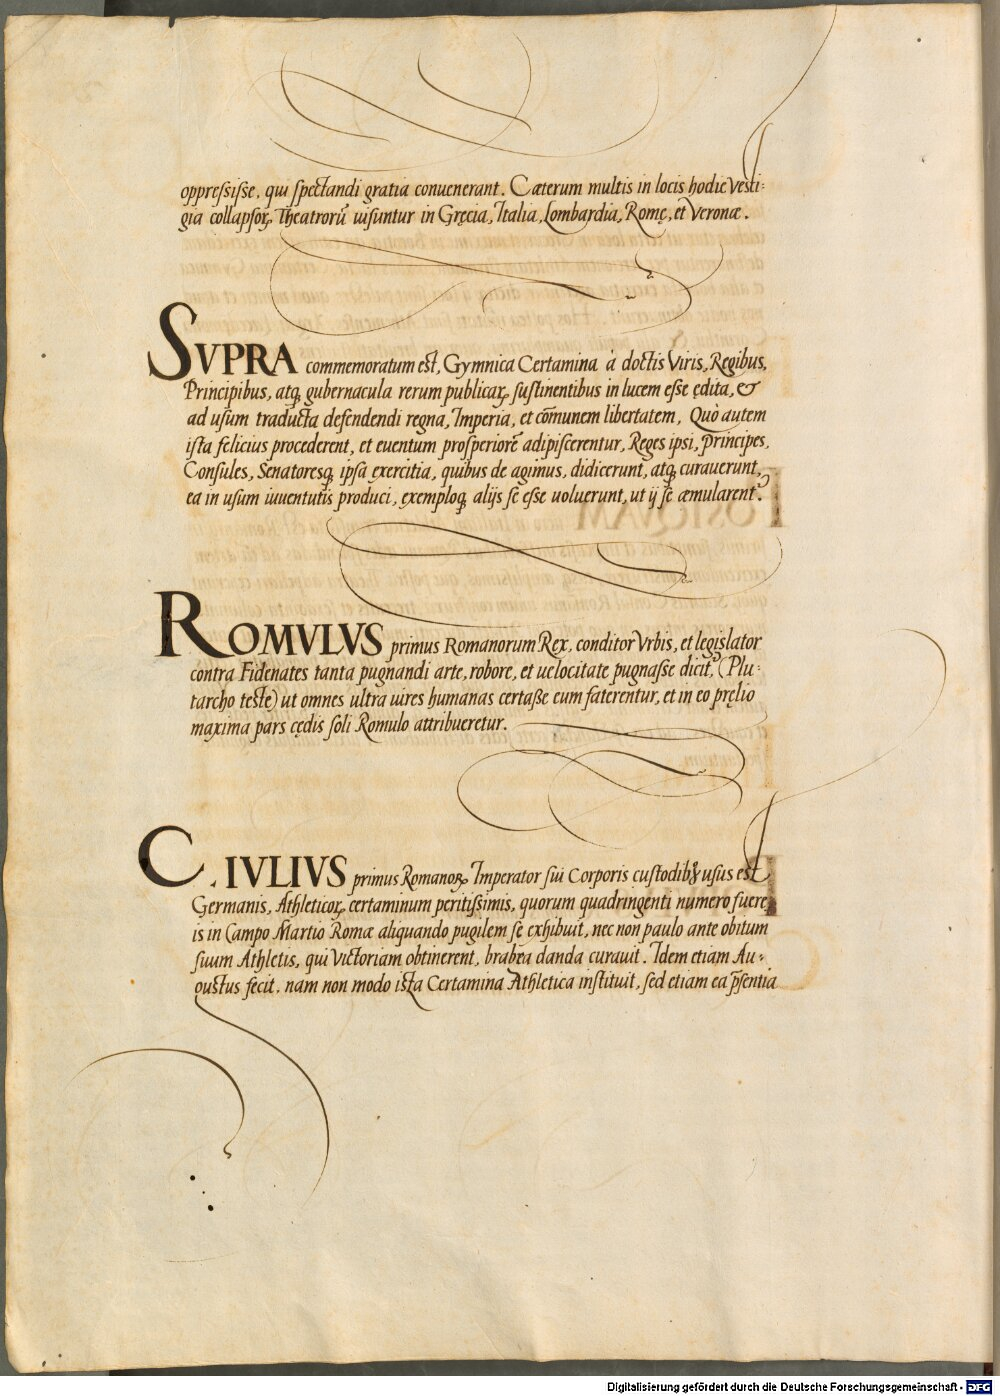 oppressisse, qui spectandi gratia conuenerant. Cæterum multis in locis hodie Vesti:
gia collapsoꝝ Theatrorũ uisuntur in Gręcia, Italia, Lombardia, Romę, et Veronæ.
SVPRA commemoratum est, Gymnica Certamina à doctis Viris, Regibus,
Principibus, atqꝫ gubernacula rerum publicaꝝ sustinentibus in lucem esse ędita, &
ad usum traducta defendendi regna, Imperia, et cõmunem libertatem, Quò autem
ista felicius procederent, et euentum prosperiorẽ adipiscerentur, Reges ipsi, Principes,
Consules, Senatoresqꝫ ipsa exercitia, quibus de agimus, didicerunt, atqꝫ curauerunt,
ea in usum iuuentutis produci, exemploqꝫ alijs se esse uoluerunt, ut ij se æmularent᷑.
ROMVLVS primus Romanorum Rex, conditor Vrbis, et legislator
contra Fidenates tanta pugnandi arte, robore, et uelocitate pugnasse dicit᷑, (Plu:
tarcho teste) ut omnes ultra uires humanas certasse eum faterentur, et in eo pręlio
maxima pars cędis soli Romulo attribueretur.
C. IVLIVS primus Romanoꝝ Imperator sui Corporis custodibꝫ usus est
Germanis, Athleticoꝝ certaminum peritissimis, quorum quadringenti numero fuere
is in Campo Martio Romæ aliquando pugilem se exhibuit, nec non paulo ante obitum
suum Athletis, qui Victoriam obtinerent, brabea danda curauit. Idem etiam Au:
gustus fecit, nam non modo ista Certamina Athletica instituit, sed etiam ea p̃sentia
Digitalisierung gefördert durch die Deutsche Forschungsgemeinschaft - DFG